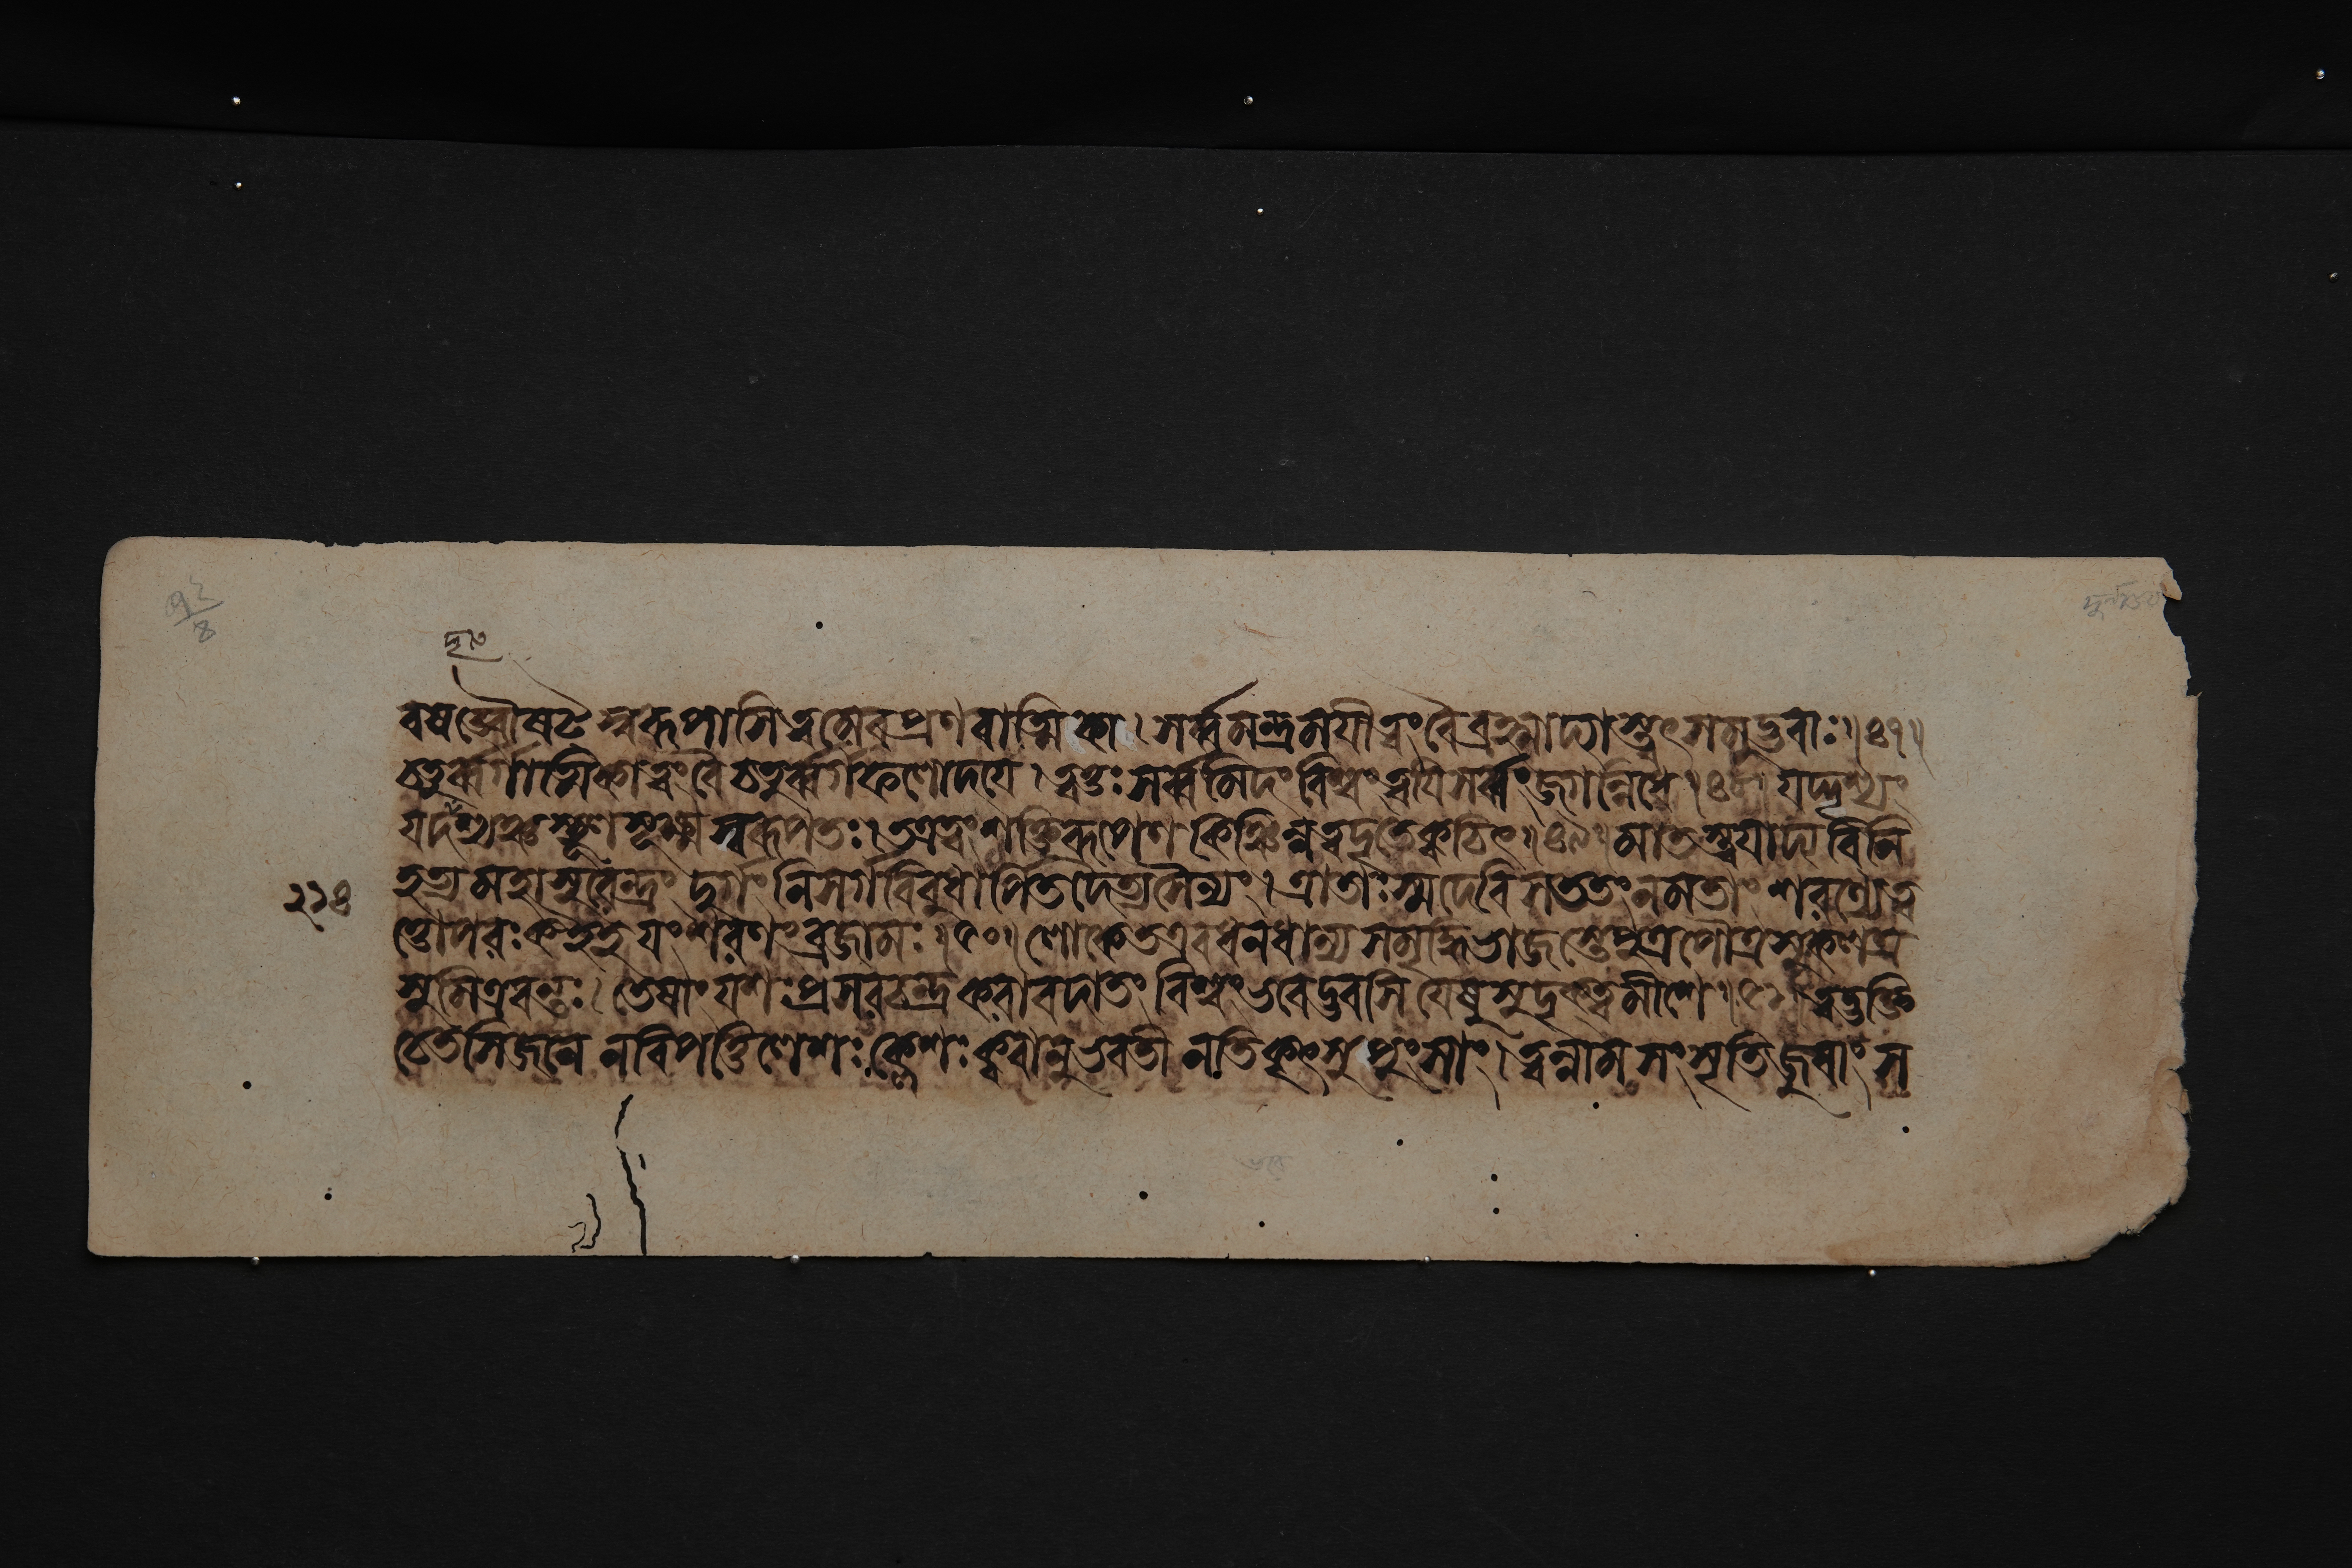 ২১৪
বষড্বৌষট্স্বরূপাসি ত্বমেব প্রণবাত্মিকা। সর্ব্বমন্ত্রময়ী ত্বং বৈ ব্রহ্মাদ্যাস্ত্বৎসমুদ্ভবাঃ॥৪৭॥
চতুর্ব্বর্গাত্মিকা ত্বং বৈ চতুর্ব্বর্গফলোদয়ে। ত্বত্তঃ সর্ব্বমিদং বিশ্বং ত্বয়ি সর্ব্বং জগন্নিধে॥৪৮॥ যদ্দৃশ্যং
যদদৃশ্যঞ্চ স্থূলসূক্ষ্মস্বরূপতঃ। তত্র ত্বং শক্তিরূপেণ কিঞ্চিন্ন ত্বদৃতে ক্বচিৎ॥৪৯॥ মাতস্ত্বয়াদ্য বিনি
হত্য মহাসুরেন্দ্রং দুর্গং নিসর্গবিবুধার্পিতদৈত্যসৈন্যং। ত্রাতাঃ স্ম দেবি সততং নমতাং শরণ্যে ত্ব
ত্তোপরঃ ক ইহ যং শরণং ব্রজামঃ॥৫০॥ লোকে ত এব ধনধান্যসমৃদ্ধিভাজস্তে পুত্রপৌত্রসুকলত্র
সুমিত্রবন্তঃ। তেষাং যশঃপ্রসরচন্দ্রকরাবদাতং বিশ্বং ভবেদ্ভবসি যেষু সুদৃক্ত্বমীশে॥৫১॥ ত্বদ্ভক্তি
চেতসি জনে ন বিপত্তিলেশঃ ক্লেশঃ ক্ব বানুভবতী নতিকৃৎসু পুংসাং। ত্বন্নামসংসৃতিজুষাং স